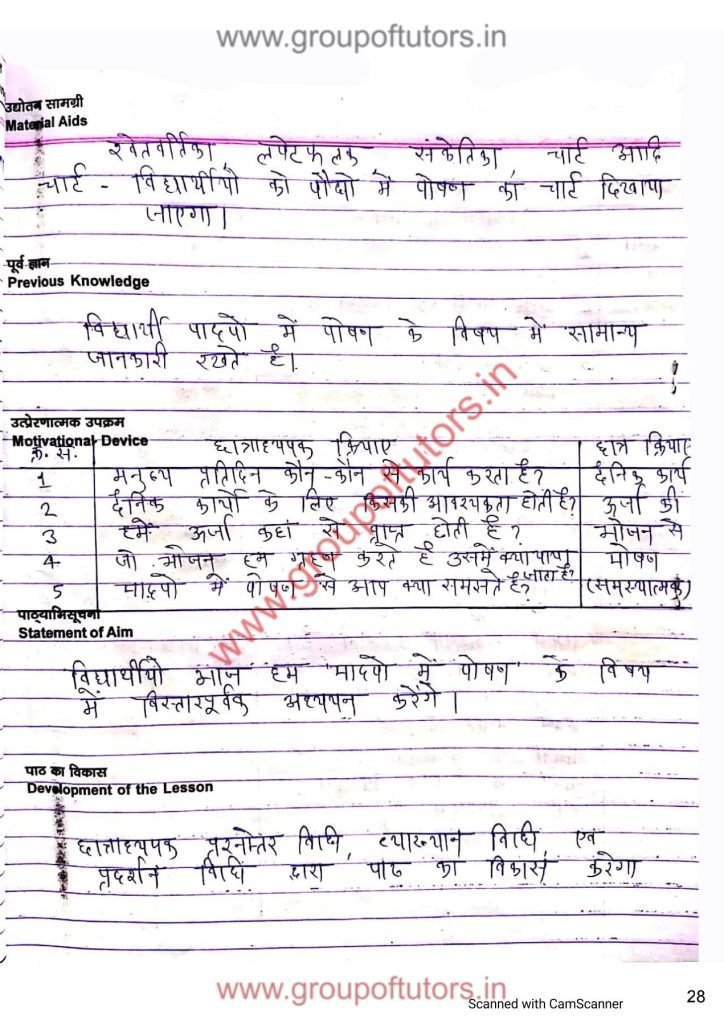 www.groupoftutors.in
उद्योतन सामग्री
Material Aids
श्वेतवर्तिका, लपेटफलक, संकेतिका, चार्ट आदि
चार्ट - विद्यार्थीयो को पौधो में पोषण का चार्ट दिखाया
जाएगा।
पूर्व ज्ञान
Previous Knowledge
विद्यार्थी पादपो में पोषण के विषय में सामान्य
जानकारी रखते है।
उत्प्रेरणात्मक उपक्रम
Motivational Device
क्र. स. छात्राध्यपक क्रियाए छात्र क्रिया
1 मनुष्य प्रतिदिन कौन-कौन से कार्य करता है? दैनिक कार्य
2 दैनिक कार्यो के लिए किसकी आवश्यकता होती है? ऊर्जा की
3 हमें ऊर्जा कहां से प्राप्त होती है? भोजन से
4 जो भोजन हम ग्रहण करते है उसमें क्या पाया जाता है? पोषण
5 पादपो में पोषण से आप क्या समझते है? (समस्यात्मक)
www.groupoftutors.in
पाठ्याभिसूचना
Statement of Aim
विद्यार्थीयो आज हम 'पादपो में पोषण' के विषय
में विस्तारपूर्वक अध्ययन करेंगे।
पाठ का विकास
Development of the Lesson
छात्राध्यपक प्रश्नोत्तर विधि, व्याख्यान विधि, एवं
प्रदर्शन विधि द्वारा पाठ का विकास करेगा
www.groupoftutors.in
Scanned with CamScanner
28